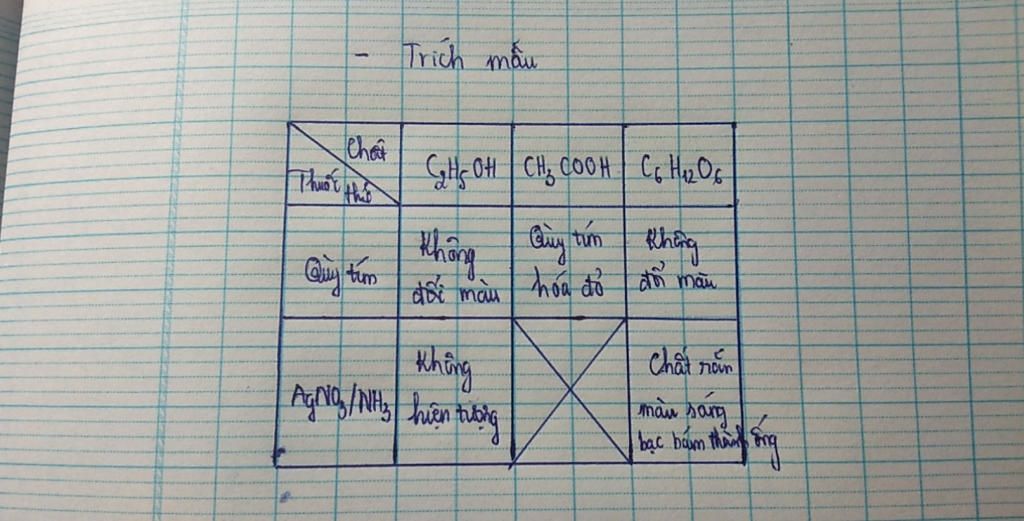 - Trích mẫu
Chất
Thuốc thử
C2H5OH
CH3COOH
C6H12O6
Quỳ tím
Không
đổi màu
Quỳ tím
hóa đỏ
Không
đổi màu
AgNO3/NH3
Không
hiện tượng
Chất rắn
màu sáng
bạc bám thành ống